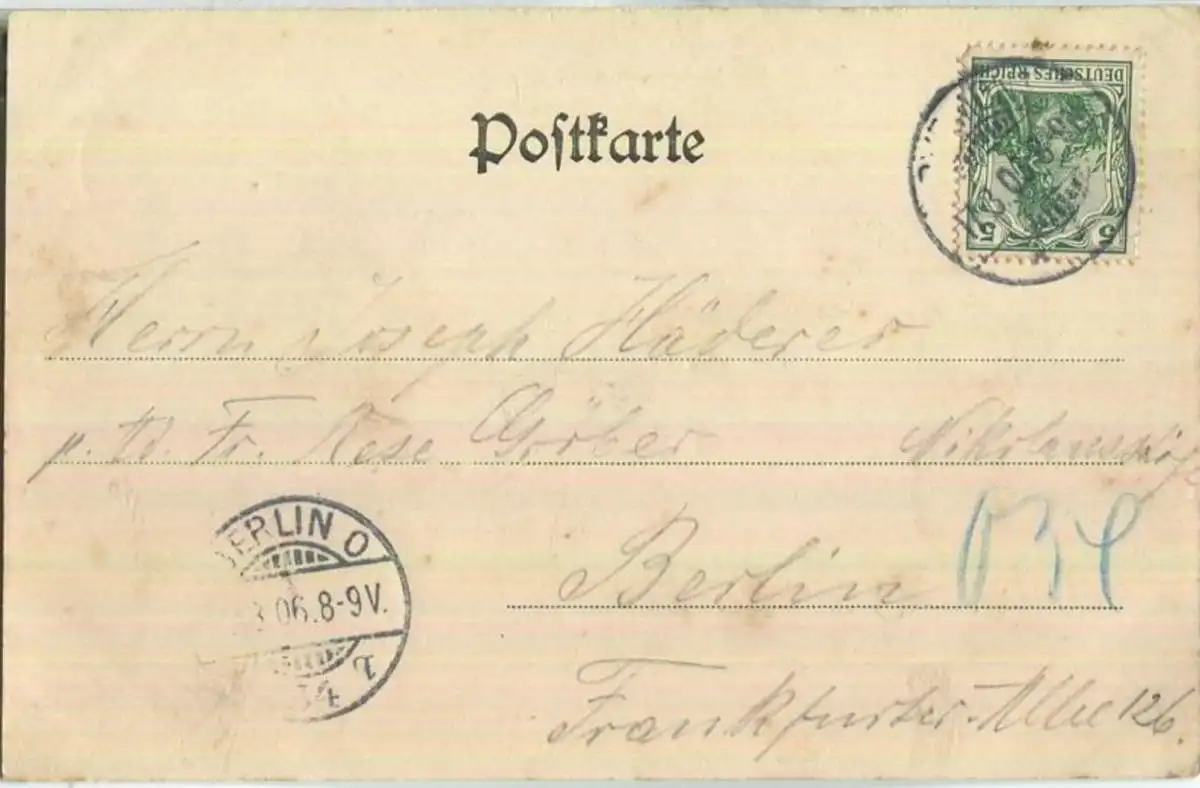 Postkarte
DEUTSCHES REICH
5 5
Herrn Joseph Häderer
p. Ad. Fr. Rese Gröber
BERLIN O
3 06.8-9V.
Berlin O 34
Frankfurter-Allee 126.